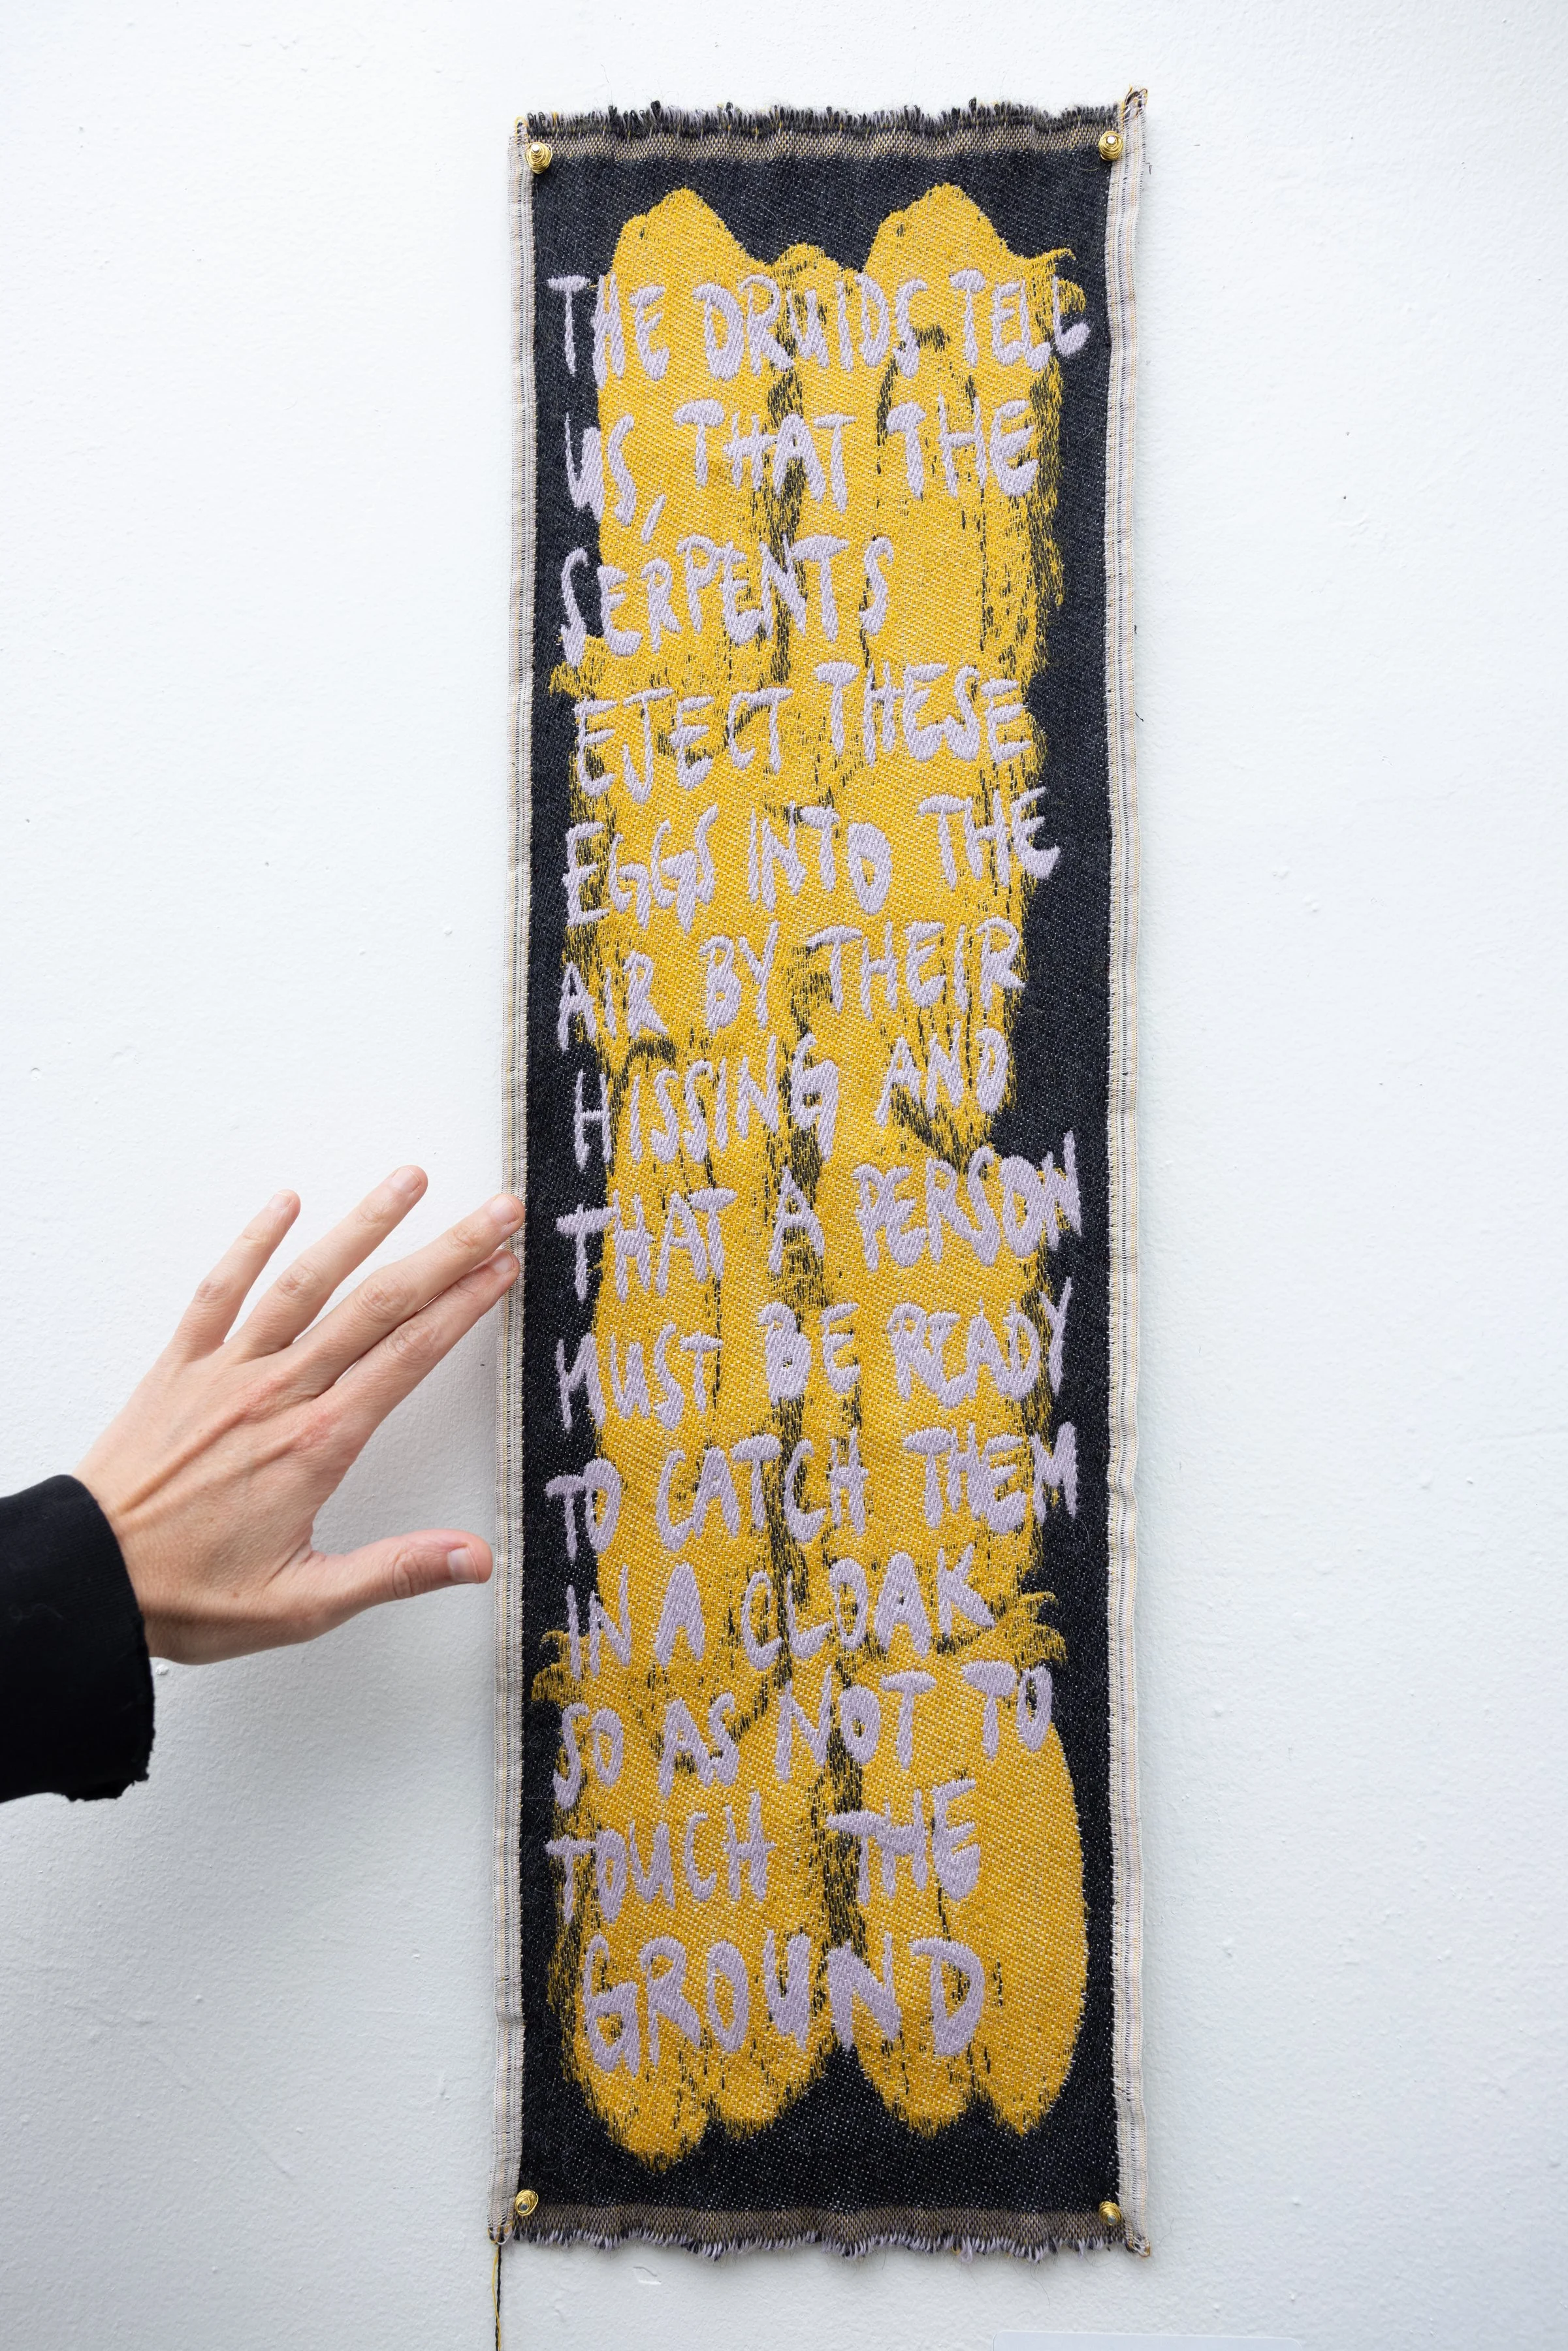 THE DRUIDS TELL
US, THAT THE
SERPENTS
EJECT THESE
EGGS INTO THE
AIR BY THEIR
HISSING AND
THAT A PERSON
MUST BE READY
TO CATCH THEM
IN A CLOAK
SO AS NOT TO
TOUCH THE
GROUND